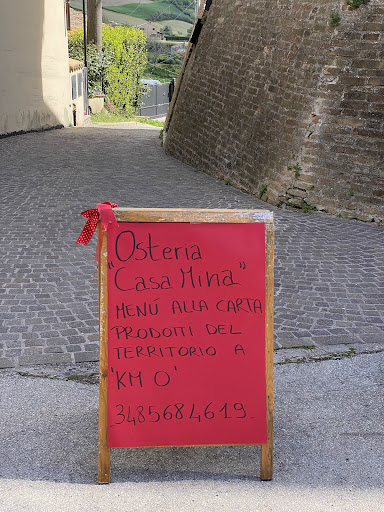 "Osteria
"Casa Mina"
MENÚ ALLA CARTA
PRODOTTI DEL
TERRITORIO A
'KM 0'
3485684619